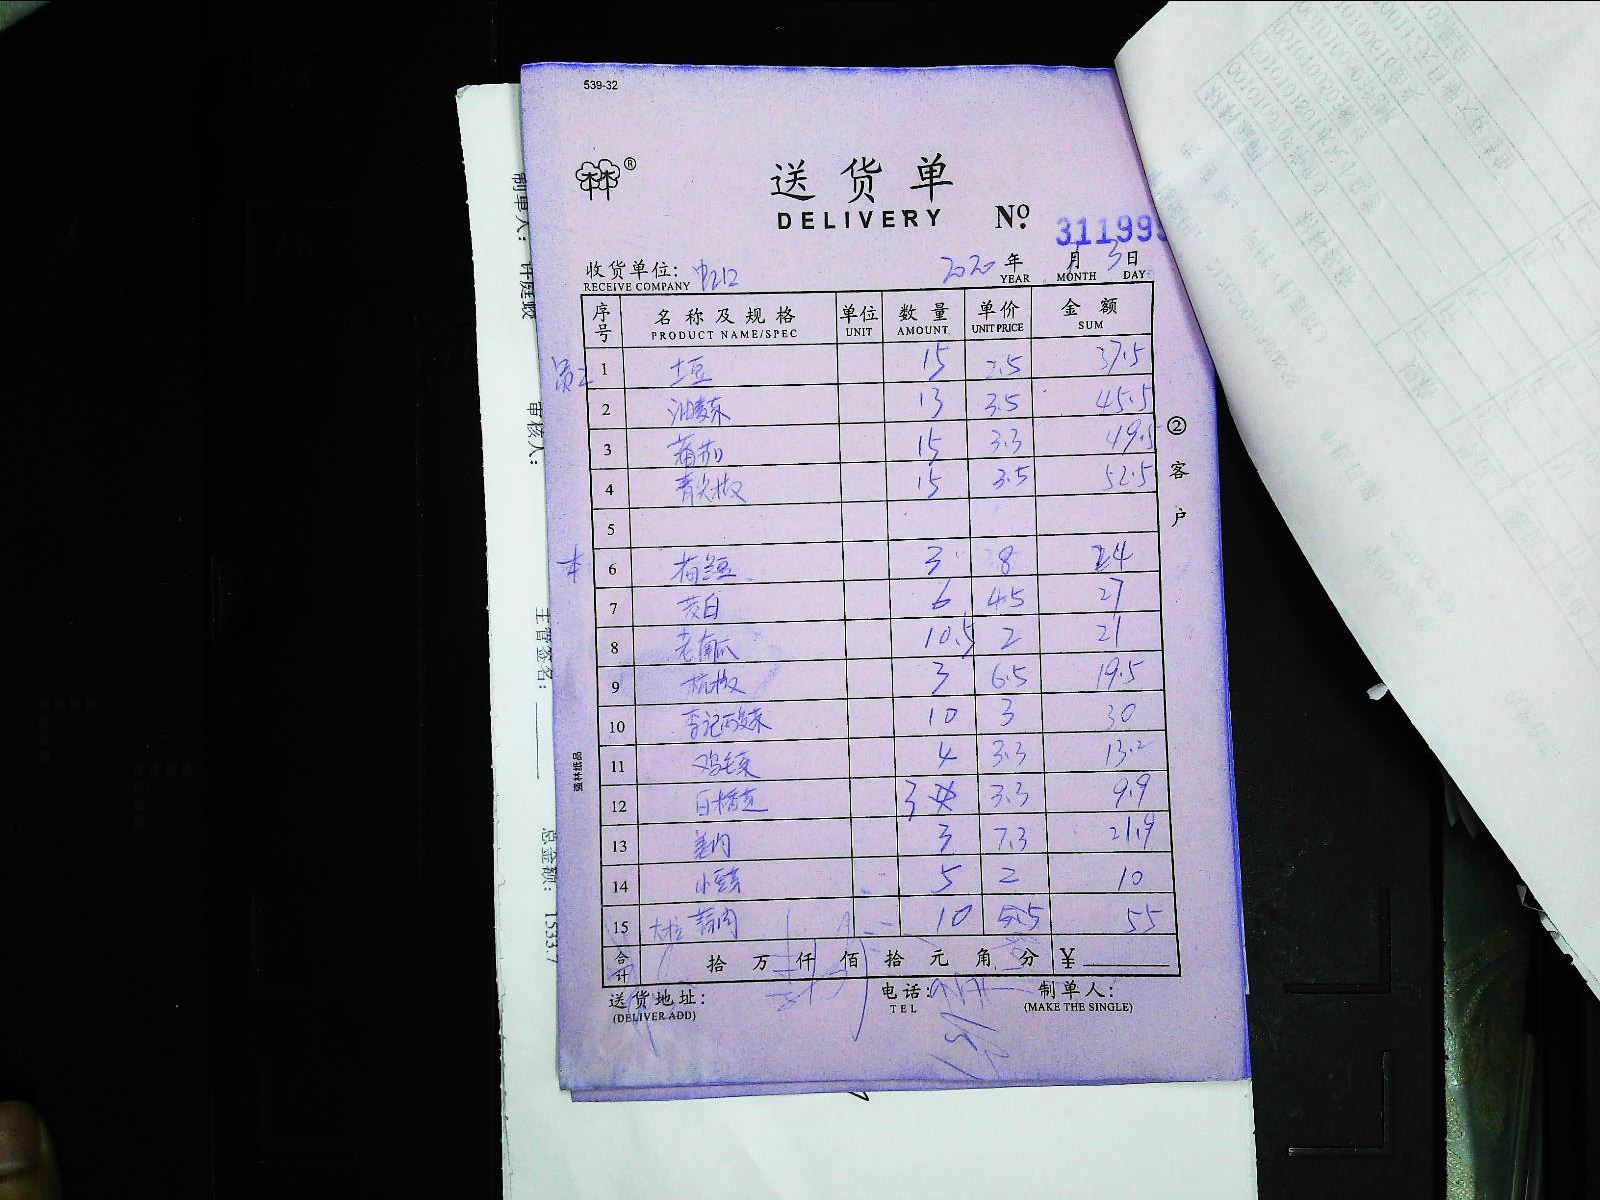 539-32
林®
送货单
DELIVERY
No. 31199
收货单位:
RECEIVE COMPANY
2020 年 月 3 日
YEAR MONTH DAY
序号 名称及规格 单位 数量 单价 金额
PRODUCT NAME/SPEC UNIT AMOUNT UNIT PRICE SUM
1 土豆 15 2.5 37.5
2 油麦菜 13 3.5 45.5
3 蕃茄 15 3.3 49.5
4 青尖椒 15 3.5 52.5
5
6 荷兰豆 3 8 24
7 茭白 6 4.5 27
8 老南瓜 10.5 2 21
9 杭椒 3 6.5 19.5
10 李记酸菜 10 3 30
11 鸡毛菜 4 3.3 13.2
12 白 3 3.3 9.9
13 姜肉 3 7.3 21.9
14 小豆芽 5 2 10
15 大粒 蒜肉 10 5.5 55
合计 拾 万 仟 佰 拾 元 角 分 ¥
送货地址:
(DELIVER ADD)
电话:
TEL
制单人:
(MAKE THE SINGLE)
② 客户
盛林纸品
制单人: 许庭
审核人:
主管签名:
总金额: 1533.7